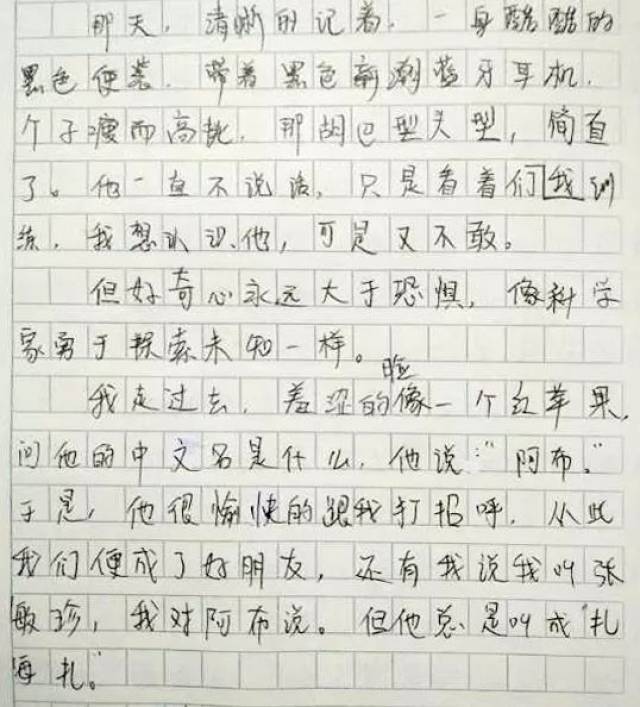 那天，清晰的记着，一身酷酷的
黑色便装，带着黑色新潮蓝牙耳机，
个子瘦而高挑，那胡巴型头型，简直
了。他一直不说话，只是看着们我训
练，我想认识他，可是又不敢。
但好奇心永远大于恐惧，像科学
家勇于探索未知一样。
我走过去，羞涩的脸像一个红苹果，
问他的中文名是什么，他说："阿布。"
于是，他很愉快的跟我打招呼，从此
我们便成了好朋友，还有我说我叫张
敏珍，我对阿布说。但他总是叫成"扎
每扎。"